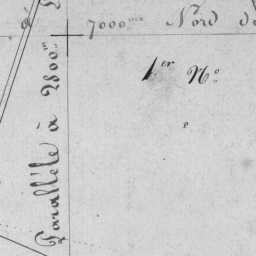 à 7000me Nord d
1er No
Parallèle à 2800m